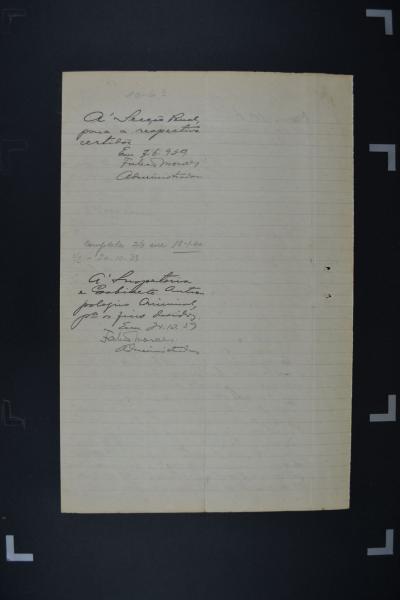 A' Secção Penal,
para a respectiva
certidão
Em 7.6.959
Fabio Moraes
Administrador
Completa 2/3 em 18-1-60
20.10.59
A' Inspetoria
e Gabinete Antro
pologia Criminal,
pª os fins devidos.
Em 24.10.59
Fabio Moraes
Administrador